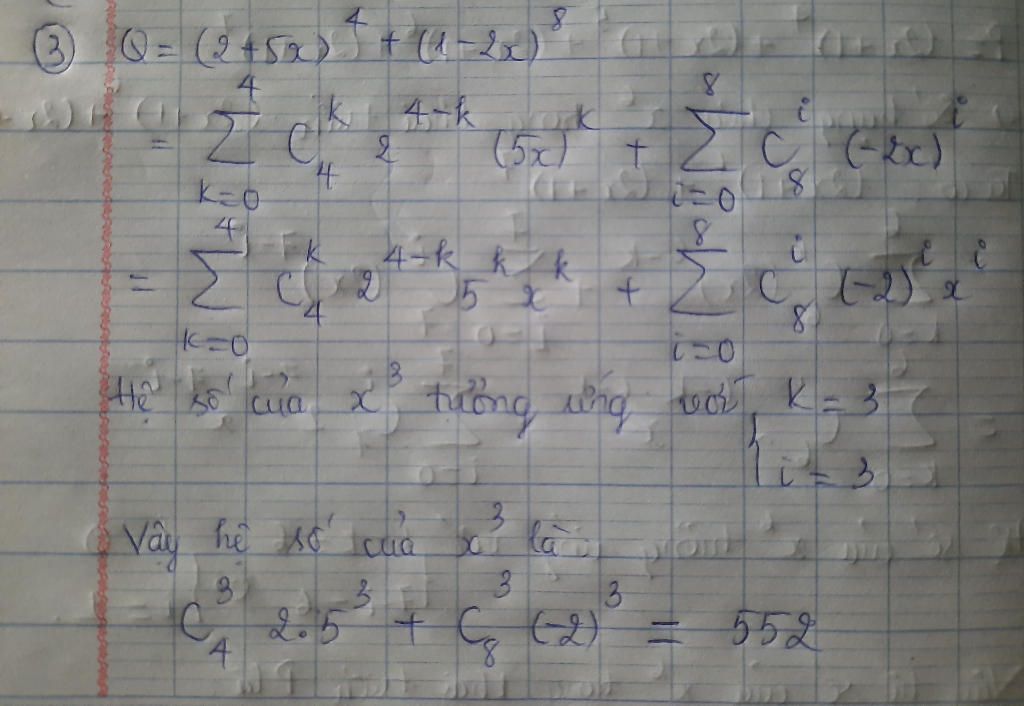 ③ Q = (2+5x)^4 + (1-2x)^8
= \sum_{k=0}^{4} C_4^k 2^{4-k} (5x)^k + \sum_{i=0}^{8} C_8^i (-2x)^i
= \sum_{k=0}^{4} C_4^k 2^{4-k} 5^k x^k + \sum_{i=0}^{8} C_8^i (-2)^i x^i
Hệ số của x^3 tương ứng với { k = 3
i = 3
Vậy hệ số của x^3 là
C_4^3 2.5^3 + C_8^3 (-2)^3 = 552